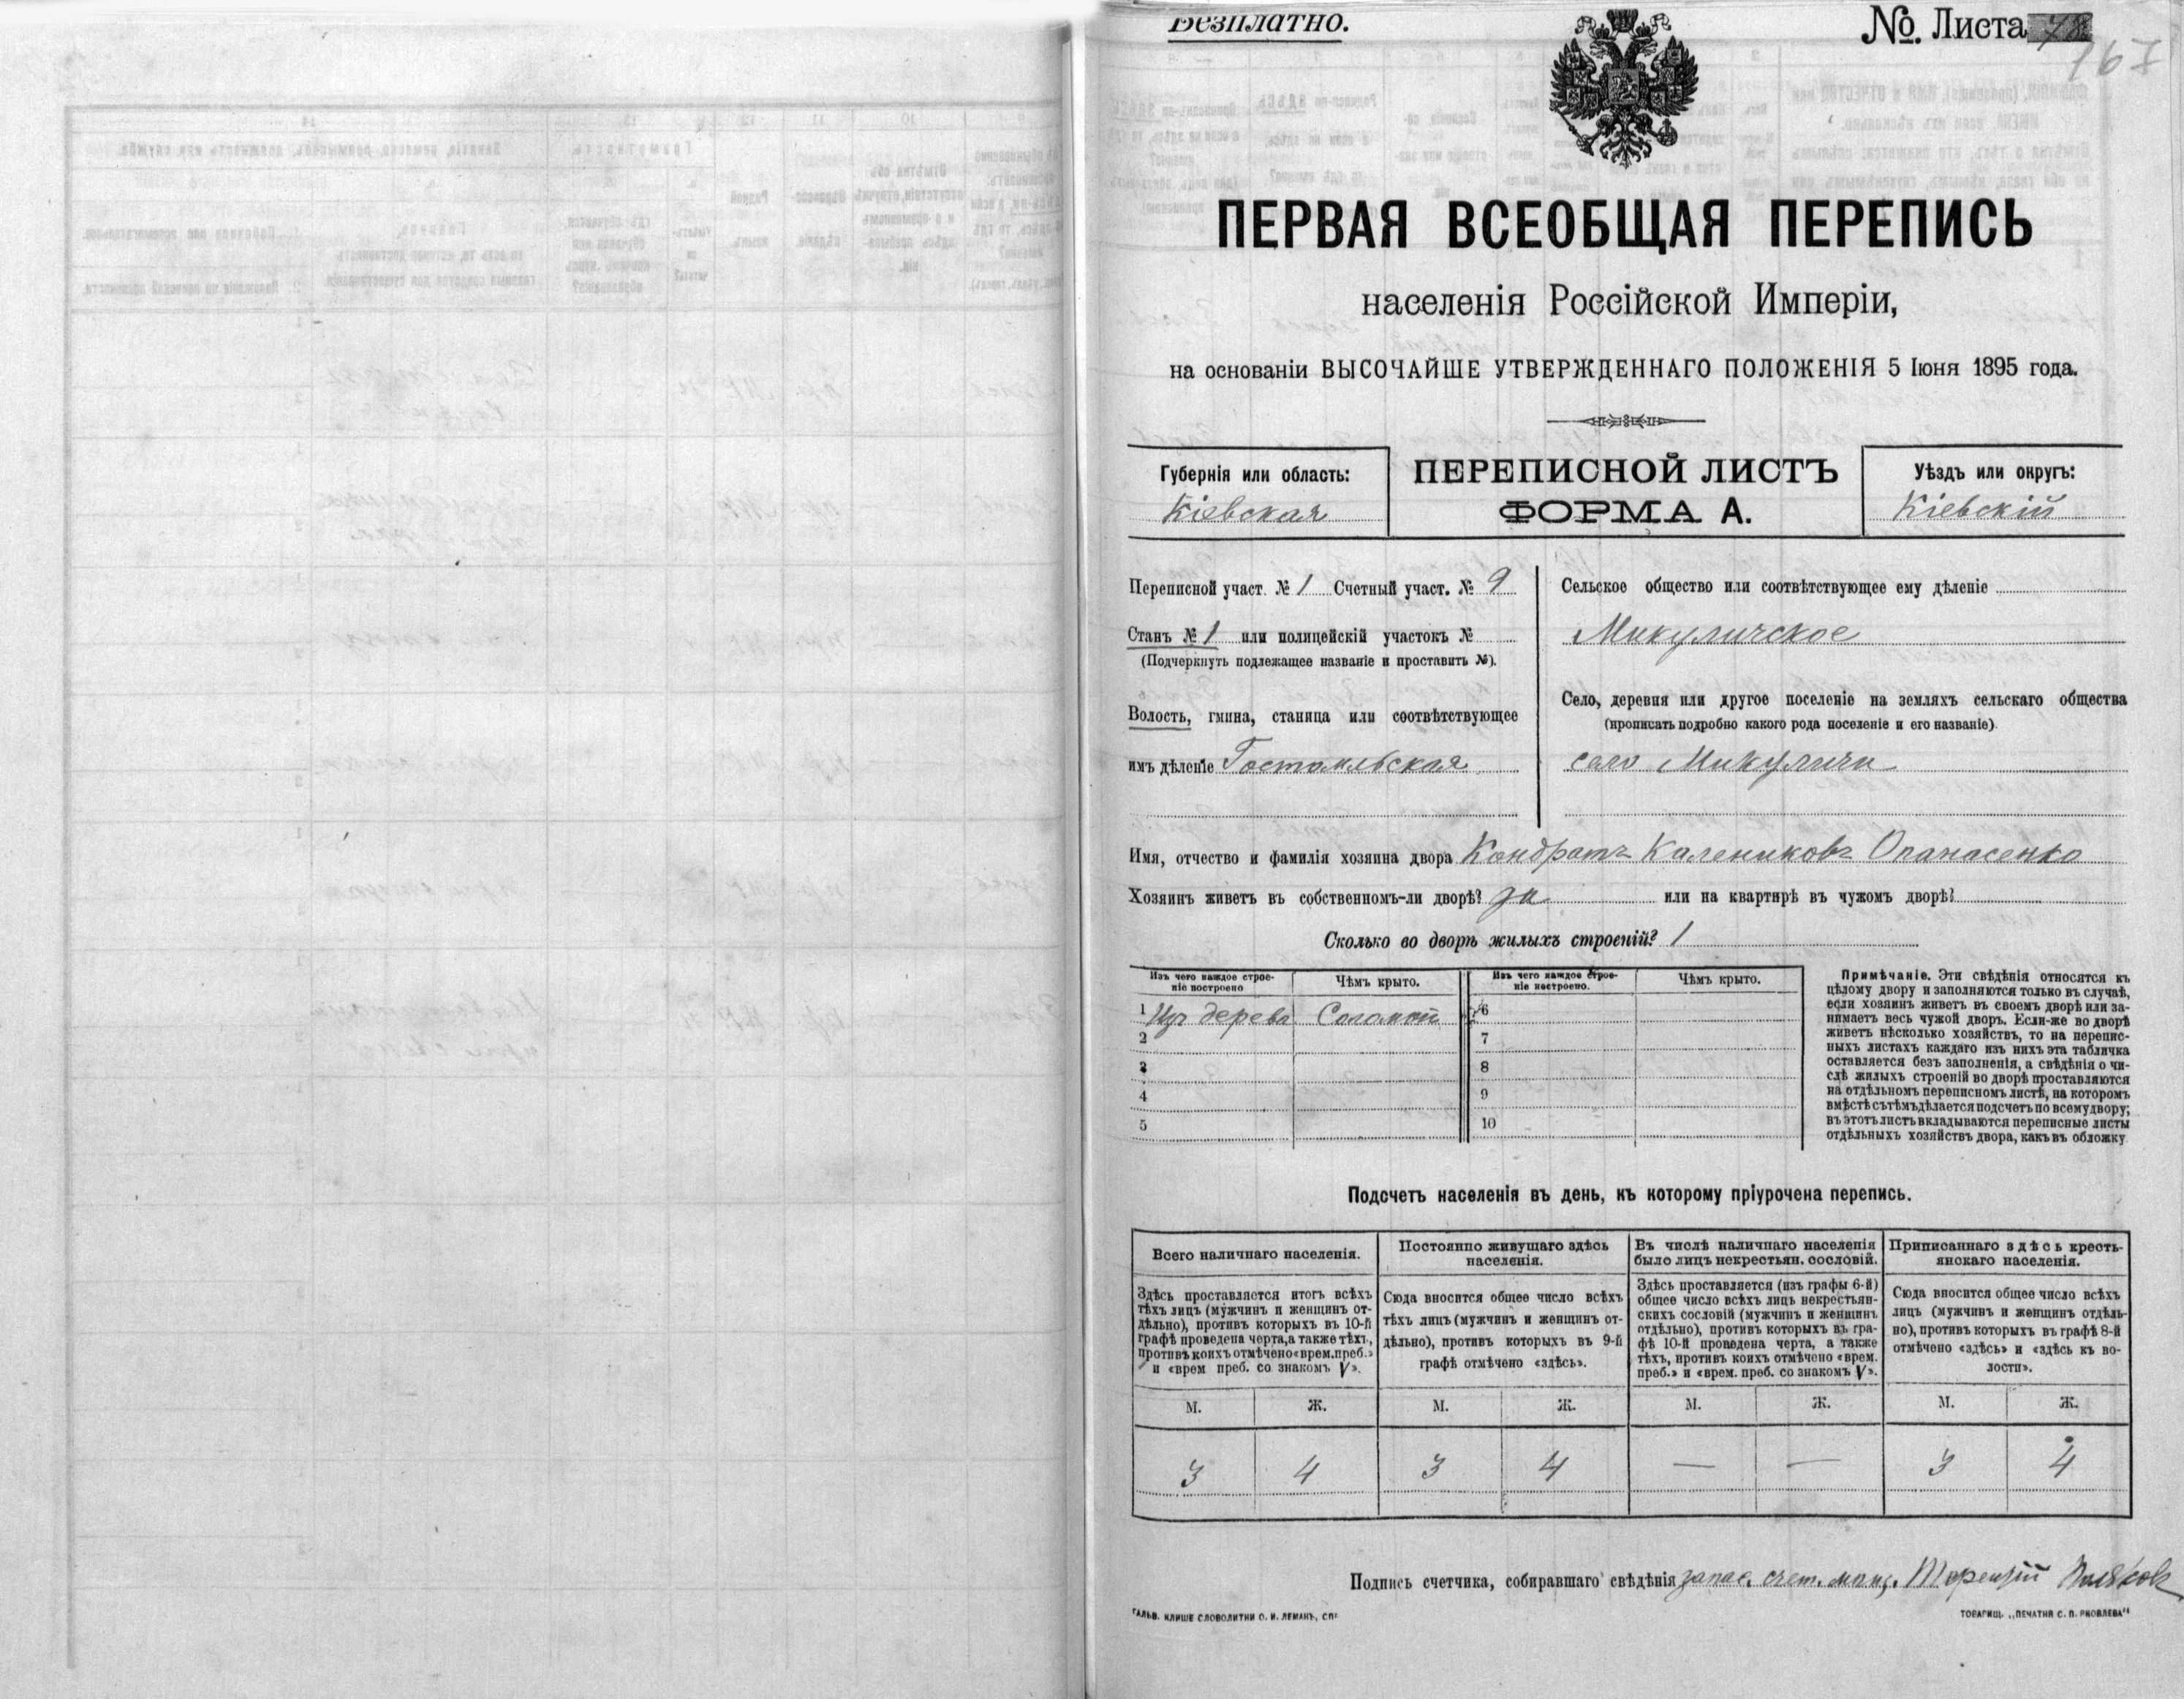 Безплатно.
№. Листа 78
167
ПЕРВАЯ ВСЕОБЩАЯ ПЕРЕПИСЬ
населенія Россійской Имперіи,
на основаніи ВЫСОЧАЙШЕ УТВЕРЖДЕННАГО ПОЛОЖЕНІЯ 5 Іюня 1895 года.
Губернія или область:
Кіевская
ПЕРЕПИСНОЙ ЛИСТЪ
ФОРМА А.
Уѣздъ или округъ:
Кіевскій
Переписной участ. № 1 Счетный участ. № 9
Станъ № 1 или полицейскій участокъ №
(Подчеркнуть подлежащее названіе и проставить №).
Волость, гмина, станица или соотвѣтствующее
имъ дѣленіе Гостомльская
Сельское общество или соотвѣтствующее ему дѣленіе
Микуличское
Село, деревня или другое поселеніе на земляхъ сельскаго общества
(прописать подробно какого рода поселеніе и его названіе).
село Микуличи
Имя, отчество и фамилія хозяина двора Кондратъ Калениковъ Опанасенко
Хозяинъ живетъ въ собственномъ-ли дворѣ? да или на квартирѣ въ чужомъ дворѣ?
Сколько во дворѣ жилыхъ строеній? 1
Изъ чего каждое строе-
ніе построено
Чѣмъ крыто.
Изъ чего каждое строе-
ніе построено.
Чѣмъ крыто.
1 Изъ дерева Соломой 6
2 7
3 8
4 9
5 10
Примѣчаніе. Эти свѣдѣнія относятся къ
цѣлому двору и заполняются только въ случаѣ,
если хозяинъ живетъ въ своемъ дворѣ или за-
нимаетъ весь чужой дворъ. Если-же во дворѣ
живетъ нѣсколько хозяйствъ, то на перепис-
ныхъ листахъ каждаго изъ нихъ эта табличка
оставляется безъ заполненія, а свѣдѣнія о чи-
слѣ жилыхъ строеній во дворѣ проставляются
на отдѣльномъ переписномъ листѣ, на которомъ
вмѣстѣ съ тѣмъ дѣлается подсчетъ по всему двору;
въ этотъ листъ вкладываются переписные листы
отдѣльныхъ хозяйствъ двора, какъ въ обложку
Подсчетъ населенія въ день, къ которому пріурочена перепись.
Всего наличнаго населенія.
Здѣсь проставляется итогъ всѣхъ
тѣхъ лицъ (мужчинъ и женщинъ от-
дѣльно), противъ которыхъ въ 10-й
графѣ проведена черта, а также тѣхъ,
противъ коихъ отмѣчено «врем. преб.»
и «врем преб. со знакомъ V».
Постоянно живущаго здѣсь
населенія.
Сюда вносится общее число всѣхъ
тѣхъ лицъ (мужчинъ и женщинъ от-
дѣльно), противъ которыхъ въ 9-й
графѣ отмѣчено «здѣсь».
Въ числѣ наличнаго населенія
было лицъ некрестьян. сословій.
Здѣсь проставляется (изъ графы 6-й)
общее число всѣхъ лицъ некрестьян-
скихъ сословій (мужчинъ и женщинъ
отдѣльно), противъ которыхъ въ гра-
фѣ 10-й проведена черта, а также
тѣхъ, противъ коихъ отмѣчено «врем.
преб.» и «врем. преб. со знакомъ V».
Приписаннаго здѣсь кресть-
янскаго населенія.
Сюда вносится общее число всѣхъ
лицъ (мужчинъ и женщинъ отдѣль-
но), противъ которыхъ въ графѣ 8-й
отмѣчено «здѣсь» и «здѣсь къ во-
лости».
М. Ж. М. Ж. М. Ж. М. Ж.
3 4 3 4 — — 3 4
Подпись счетчика, собиравшаго свѣдѣнія запас. счет. Терентій
ГАЛЬВ. КЛИШЕ СЛОВОЛИТНИ О. И. ЛЕМАНЪ, СПБ
ТОВАРИЩ. „ПЕЧАТНЯ С. П. ЯКОВЛЕВА"